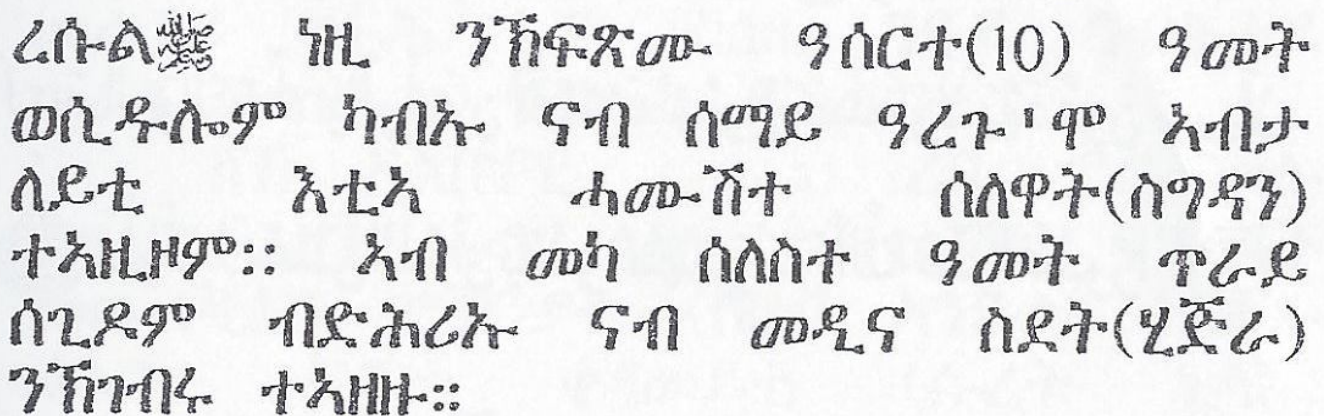 ረሱል ﷺ ነዚ ንኽፍጽሙ ዓሰርተ(10) ዓመት
ወሲዱሎም ካብኡ ናብ ሰማይ ዓረጉ'ሞ ኣብታ
ለይቲ እቲኣ ሓሙሽተ ሰለዋት(ስግዳን)
ተኣዚዞም:: ኣብ መካ ሰለስተ ዓመት ጥራይ
ሰጊዶም ብድሕሪኡ ናብ መዲና ስደት(ሂጅራ)
ንኽገብሩ ተኣዘዙ::